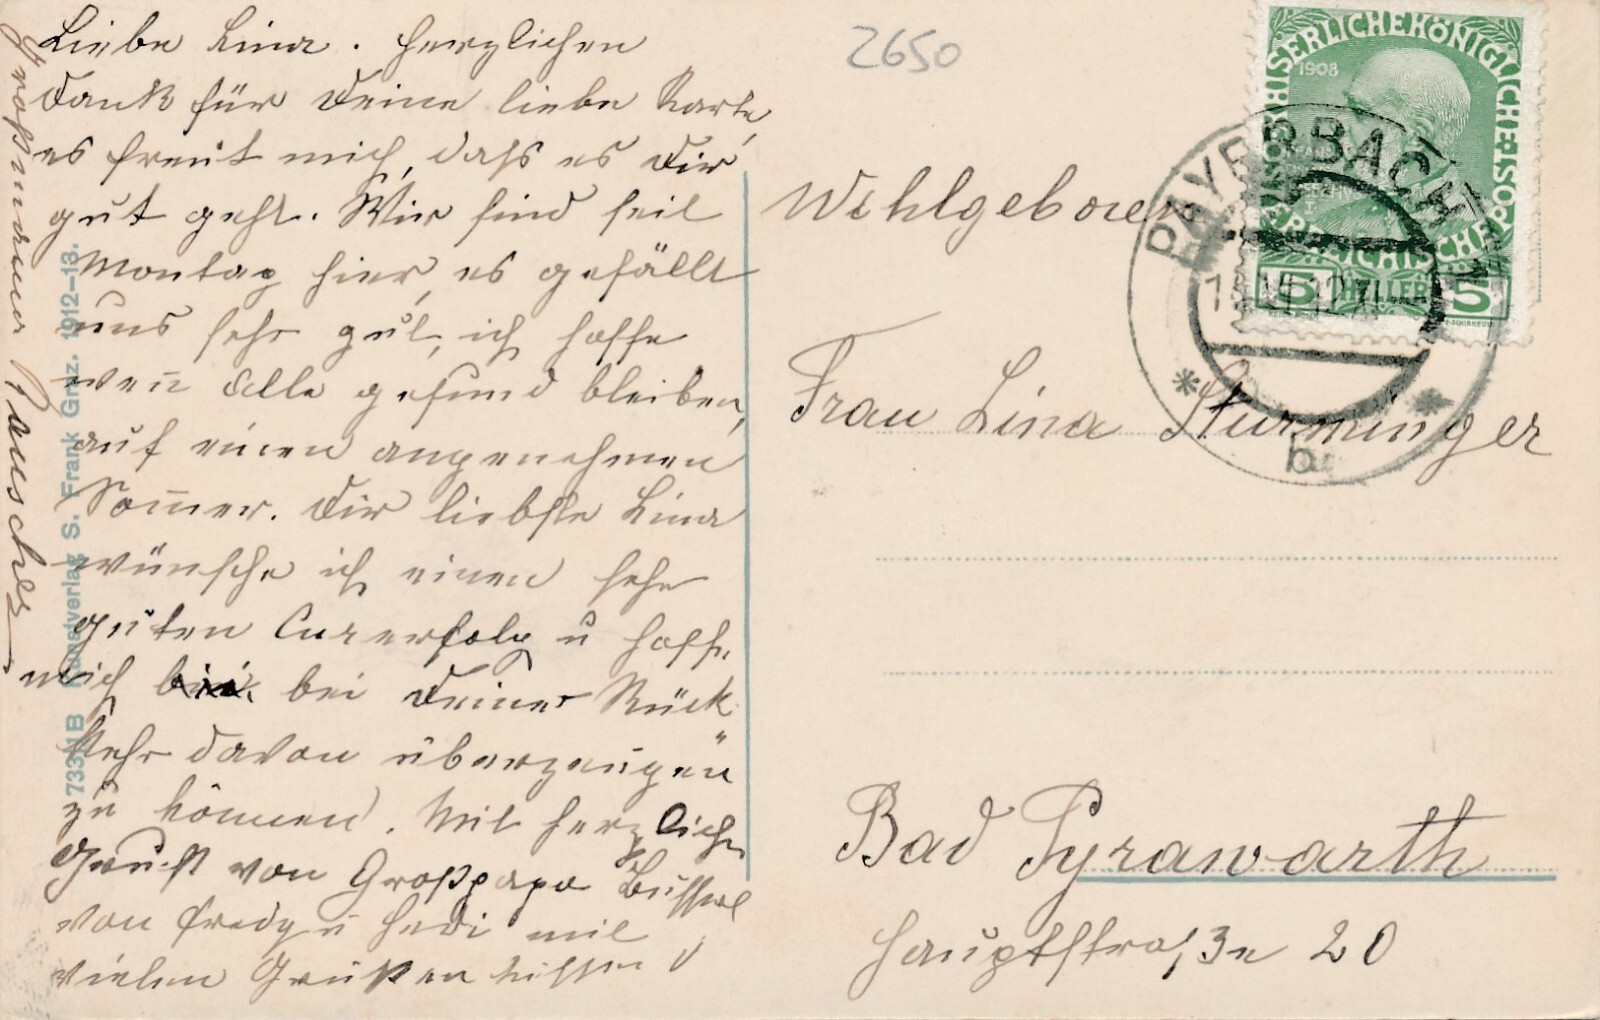 Liebe Lina. Herzlichen
Dank für Deine liebe Karte,
es freut mich, dass es Dir
gut geht. Wir sind seit
Montag hier, es gefällt
uns sehr gut, ich hoffe
wen̄ Alle gesund bleiben,
auf einen angenehmen
Som̄er. Dir liebste Lina
wünsche ich einen sehr
guten Curerfolg u hoffe
mich bei Deiner Rück
kehr davon überzeugen
zu können. Mit herzlichen
Gruß von Großpapa Bussel
von Fredy u Hedi mit
vielen Grüßen küssen
Großmama
2650
KAISERLICHE KÖNIGLICHE
ÖSTERREICHISCHE POST
1908
5 HELLER 5
PAYERBACH 1
b
Wohlgeboren
Frau Lina Sturminger
Bad Pyrawarth
Hauptstraße 20
733 NB Kunstverlag S. Frank Graz. 1912-13.